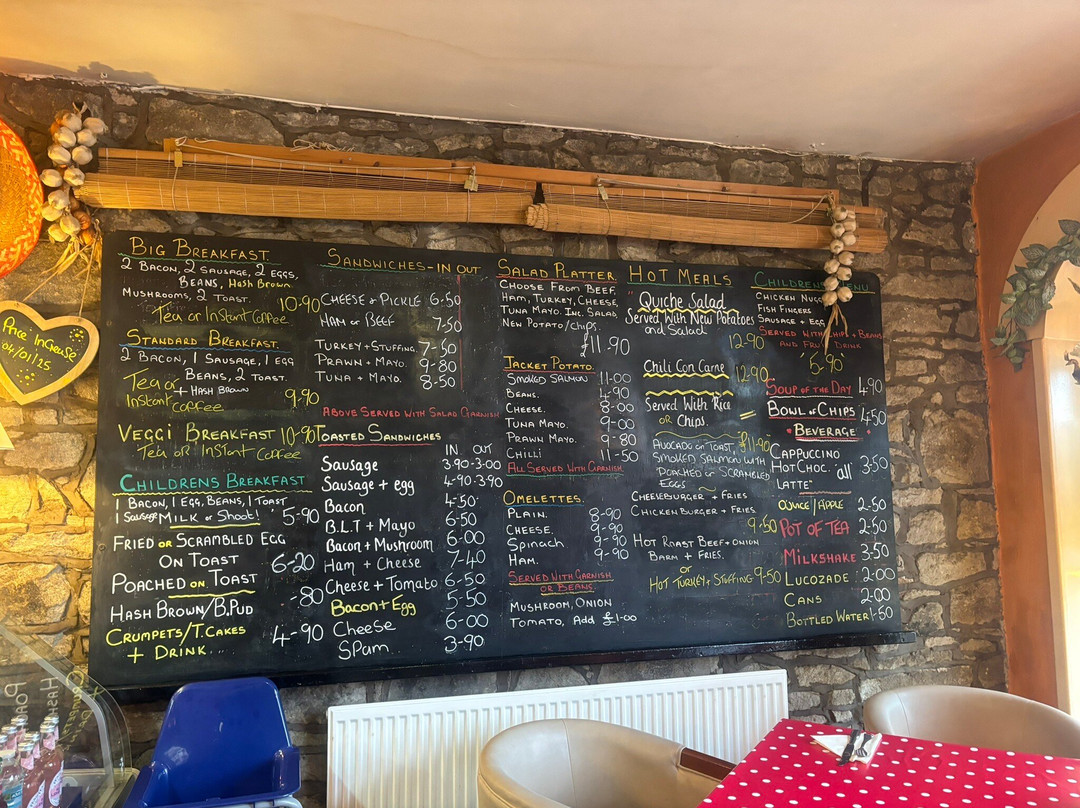 Price Increase
04/01/25
BIG BREAKFAST
2 BACON, 2 SAUSAGE, 2 EGGS,
BEANS, HASH BROWN
MUSHROOMS, 2 TOAST. 10-90
Tea or Instant Coffee
STANDARD BREAKFAST
2 BACON, 1 SAUSAGE, 1 EGG
BEANS, 2 TOAST.
+ HASH BROWN
Tea or
Instant coffee 9.90
VEGGI BREAKFAST 10-90
Tea OR Instant Coffee
CHILDRENS BREAKFAST
1 BACON, 1 EGG, BEANS, 1 TOAST
1 Sausage MILK or Shoot! 5-90
FRIED OR SCRAMBLED EGG
ON TOAST 6-20
POACHED ON TOAST
HASH BROWN/B.PUD -80
CRUMPETS/T.CAKES
+ DRINK... 4-90
SANDWICHES-IN OUT
CHEESE + PICKLE 6-50
HAM OR BEEF 7-50
TURKEY+STUFFING. 7-50
PRAWN + MAYO. 9-80
TUNA + MAYO. 8-50
ABOVE SERVED WITH SALAD GARNISH
TOASTED SANDWICHES
IN. OUT
Sausage 3-90-3-00
Sausage + egg 4-90-3-90
Bacon 4-50
B.L.T + Mayo 6-50
Bacon + Mushroom 6-00
Ham + Cheese 7-40
Cheese + Tomato 6-50
Bacon + Egg 5-50
Cheese 6-00
SPam 3-90
SALAD PLATTER
CHOOSE FROM BEEF,
HAM, TURKEY, CHEESE,
TUNA MAYO. INC. SALAD,
NEW POTATO/CHIPS.
£11.90
JACKET POTATO.
SMOKED SALMON 11-00
BEANS. 4-90
CHEESE. 8-00
TUNA MAYO. 9-00
PRAWN MAYO. 9-80
CHILLI 11-50
ALL SERVED WITH GARNISH
OMELETTES.
PLAIN. 8-90
CHEESE. 9-90
Spinach 9-90
HAM. 9-90
SERVED WITH GARNISH
OR BEANS.
MUSHROOM, ONION
TOMATO, Add £1-00
HOT MEALS
Quiche Salad
Served With New Potatoes
and Salad. 12-90
Chili Con Carne 12-90
Served With Rice
OR Chips.
AVOCADO on TOAST £11-90
SMOKED SALMON WITH
POACHED OR SCRAMBLED
EGGS
CHEESEBURGER + FRIES
CHICKEN BURGER + FRIES
9-50
HOT ROAST BEEF+ONION
BARM + FRIES.
or
HOT TURKEY+STUFFING 9-50
CHILDRENS MENU
CHICKEN
FISH FINGERS
SAUSAGE + EGG
SERVED WITH CHIPS + BEANS
AND FRUIT DRINK
5-90
SOUP OF THE DAY 4.90
BOWL OF CHIPS 4-50
BEVERAGE
CAPPUCCINO
HOT CHOC. "all" 3-50
LATTE
JUICE/APPLE 2-50
POT OF TEA 2-50
MILKSHAKE 3-50
LUCOZADE 2-00
CANS 2-00
BOTTLED WATER 1-50